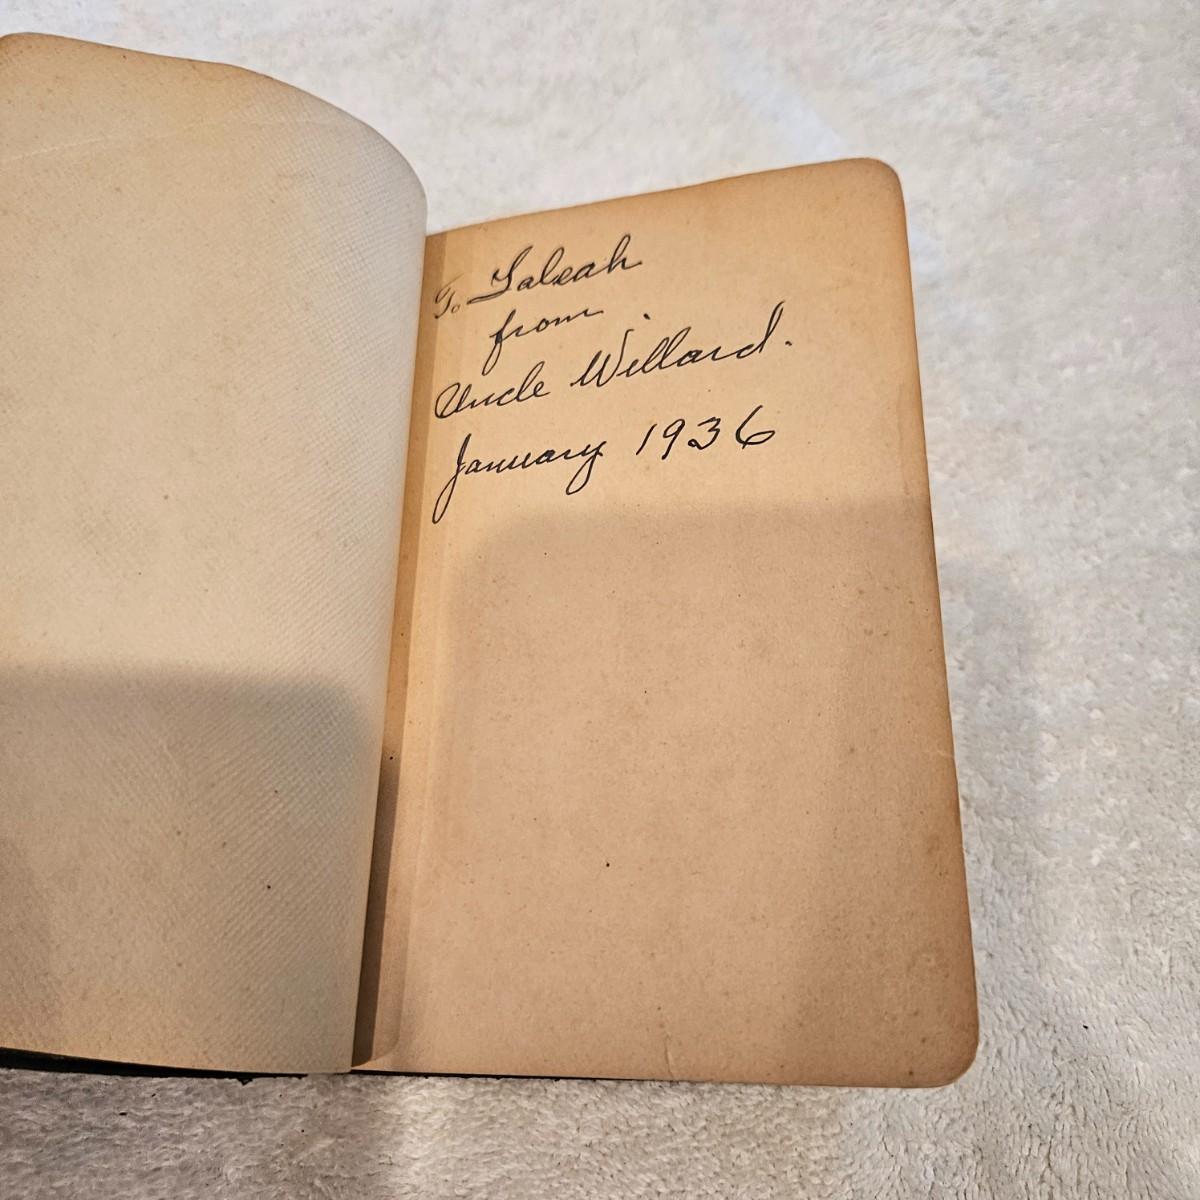 To Saleah
from
Uncle Willard.
January 1936